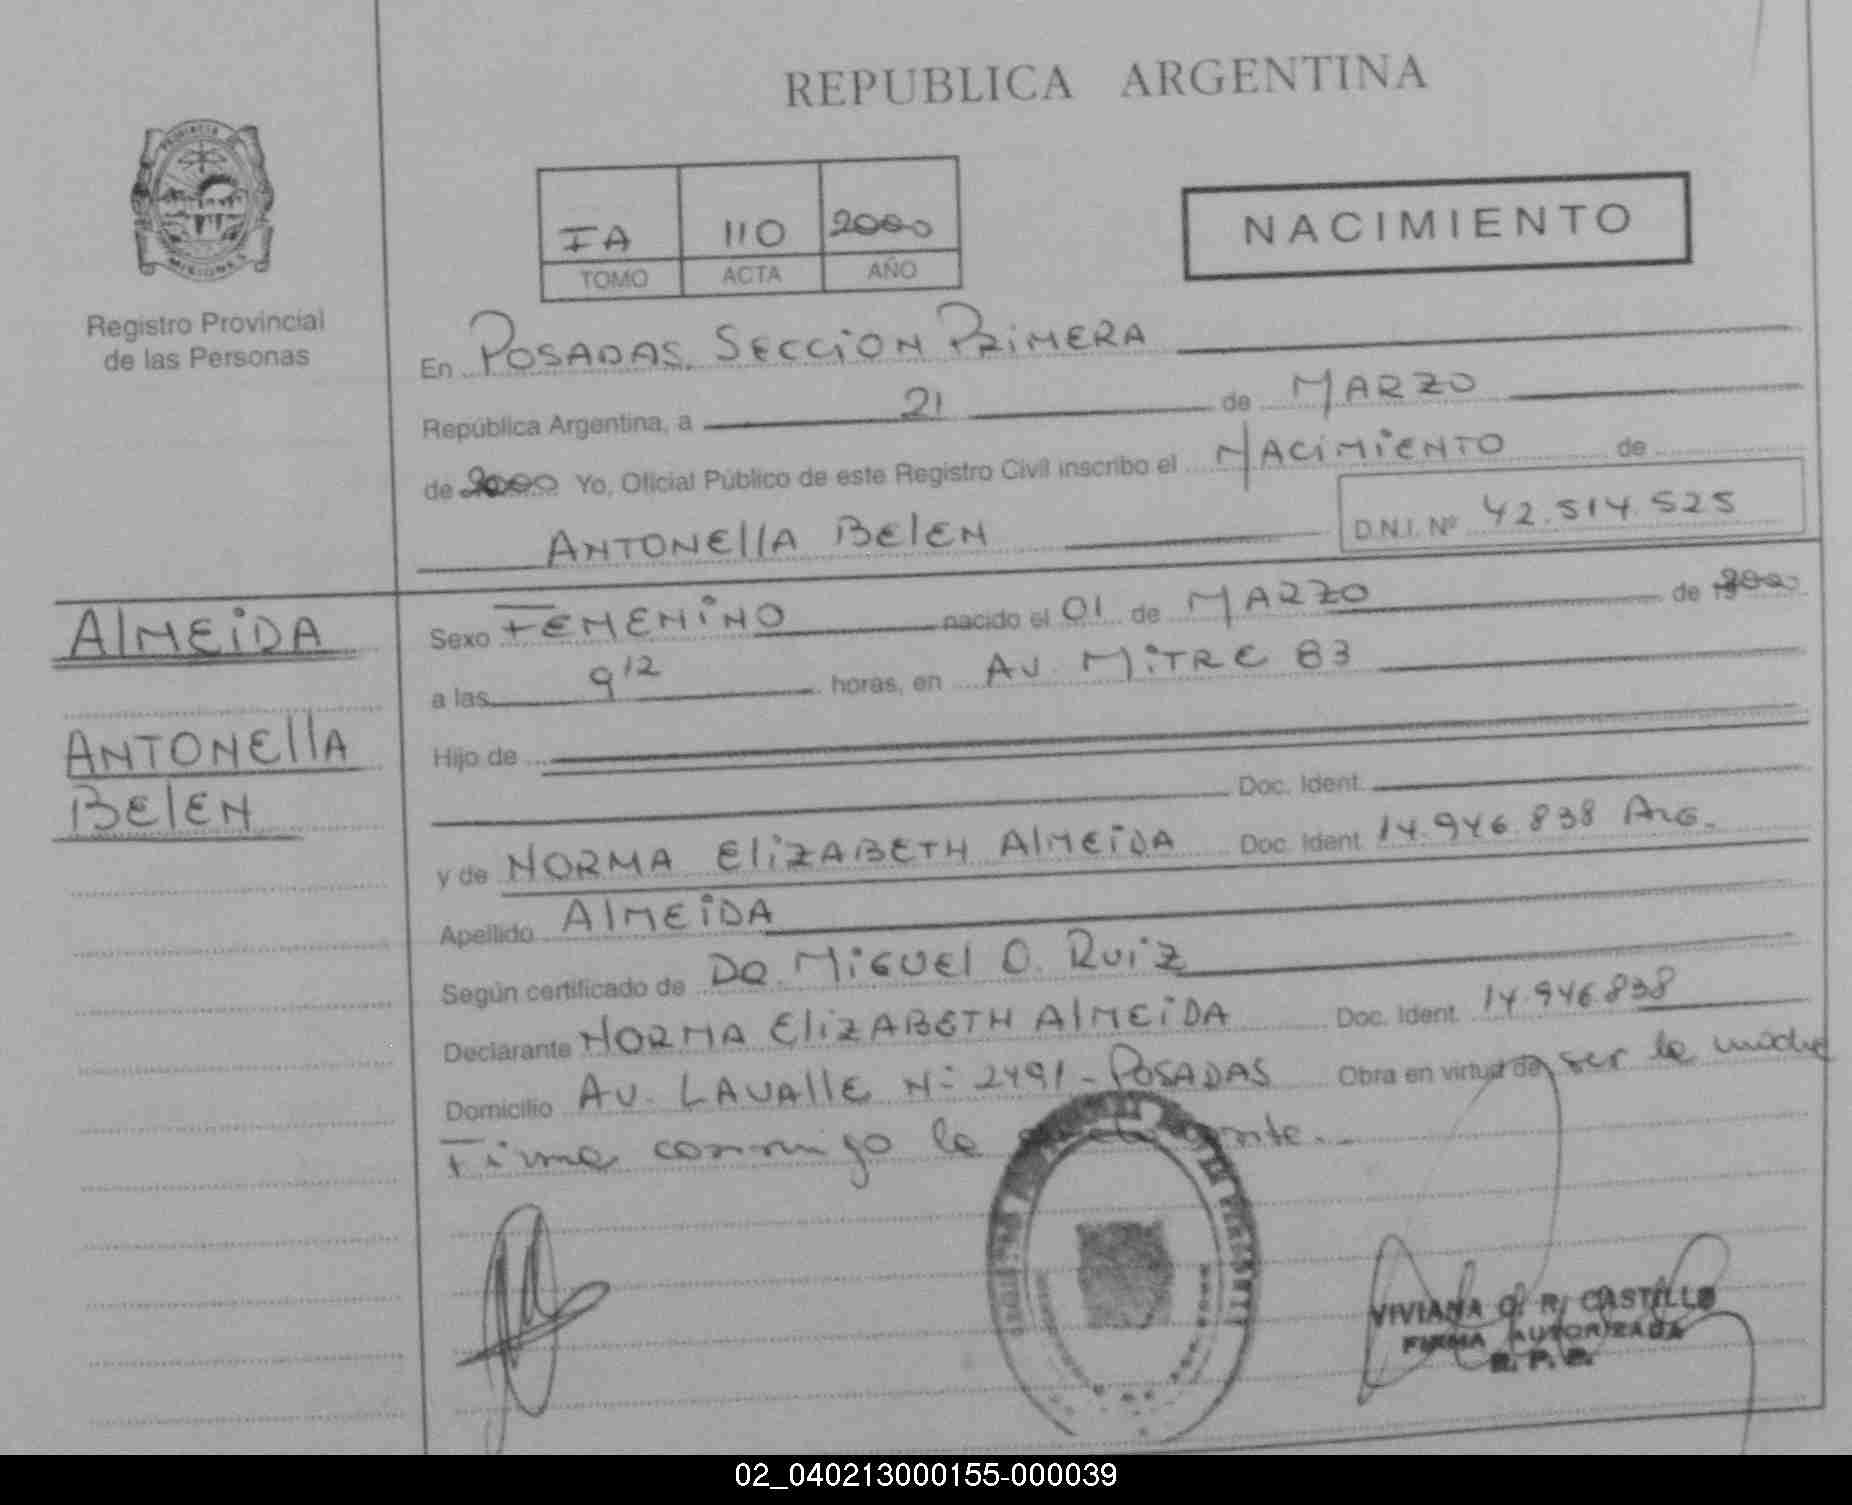 REPUBLICA ARGENTINA
PROVINCIA
MISIONES
Registro Provincial
de las Personas
IA 110 2000
TOMO ACTA AÑO
NACIMIENTO
En POSADAS. SECCION PRIMERA
República Argentina, a 21 de MARZO
de 2000 Yo, Oficial Público de este Registro Civil inscribo el NACIMIENTO de
ANTONEllA BElEN D.N.I. Nº 42.514.525
AlMEIDA
ANTONEllA
BElEN
Sexo FEMENINO nacido el 01 de MARZO de 2000
a las 9 12 horas, en AV. MITRE 83
Hijo de
Doc. Ident.
y de NORMA EliZABETH AlMEIDA Doc. Ident. 14.946.838 ARG.
Apellido AlMEIDA
Según certificado de DR. MIGUEl O. RUIZ
Declarante NORMA EliZABETH AlMEIDA Doc. Ident. 14.946.838
Domicilio AV. LAVAllE Nº 2491 - POSADAS Obra en virtud de ser la madre
Firma conmigo la
VIVIANA R. CASTILLO
FIRMA AUTORIZADA
R. P. P.
02_040213000155-000039